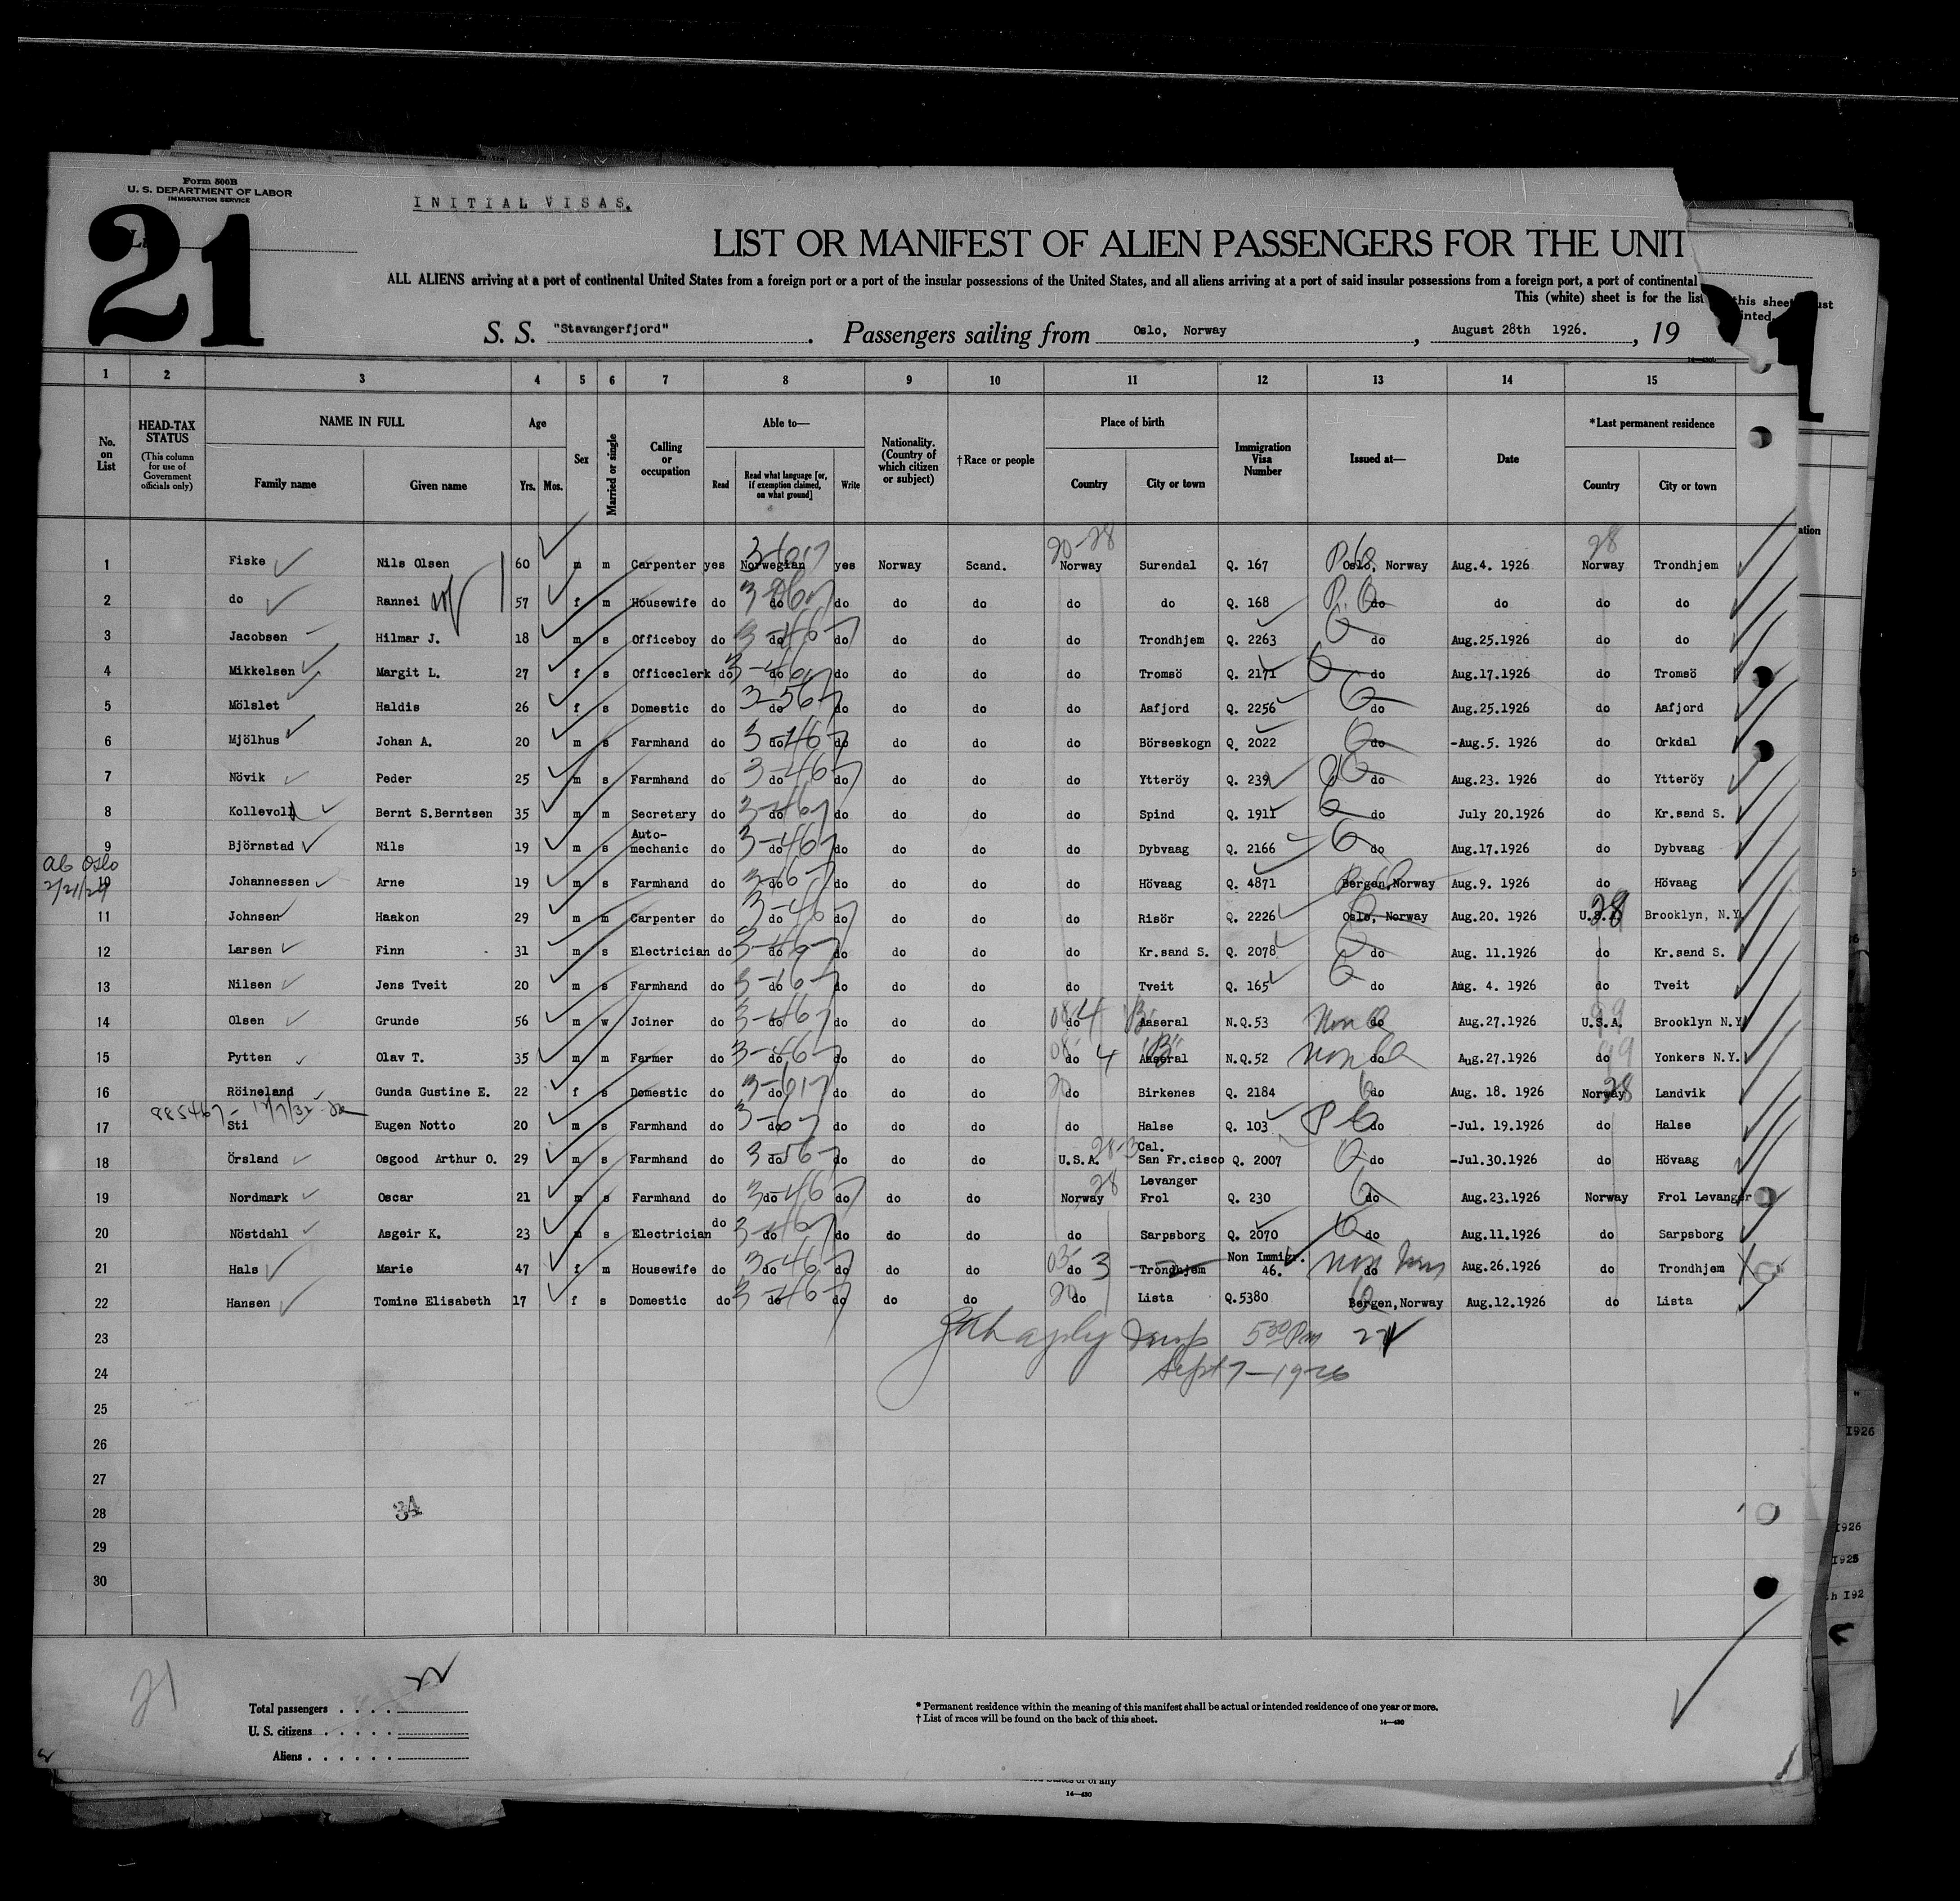 Form 500B
U. S. DEPARTMENT OF LABOR
IMMIGRATION SERVICE
INITIAL VISAS.
21
LIST OR MANIFEST OF ALIEN PASSENGERS FOR THE UNIT
ALL ALIENS arriving at a port of continental United States from a foreign port or a port of the insular possessions of the United States, and all aliens arriving at a port of said insular possessions from a foreign port, a port of continental
This (white) sheet is for the list
S. S. "Stavangerfjord". Passengers sailing from Oslo, Norway, August 28th 1926., 19
1 2 3 4 5 6 7 8 9 10 11 12 13 14 15
No. on List HEAD-TAX STATUS (This column for use of Government officials only) NAME IN FULL Family name Given name Age Yrs. Mos. Sex Married or single Calling or occupation Able to— Read Read what language [or, if exemption claimed, on what ground] Write Nationality. (Country of which citizen or subject) †Race or people Place of birth Country City or town Immigration Visa Number Issued at— Date *Last permanent residence Country City or town
20-28 28
1 Fiske Nils Olsen 60 m m Carpenter yes Norwegian yes Norway Scand. Norway Surendal Q. 167 Oslo, Norway Aug.4. 1926 Norway Trondhjem
2 do Rannei 57 f m Housewife do do do do do do do Q. 168 do do do do
3 Jacobsen Hilmar J. 18 m s Officeboy do do do do do do Trondhjem Q. 2263 do Aug.25.1926 do do
4 Mikkelsen Margit L. 27 f s Officeclerk do do do do do do Tromsö Q. 2171 do Aug.17.1926 do Tromsö
5 Mölslet Haldis 26 f s Domestic do do do do do do Aafjord Q. 2256 do Aug.25.1926 do Aafjord
6 Mjölhus Johan A. 20 m s Farmhand do do do do do do Börseskogn Q. 2022 do -Aug.5. 1926 do Orkdal
7 Növik Peder 25 m s Farmhand do do do do do do Ytteröy Q. 239 do Aug.23. 1926 do Ytteröy
8 Kollevoll Bernt S.Berntsen 35 m m Secretary do do do do do do Spind Q. 1911 do July 20.1926 do Kr.sand S.
9 Björnstad Nils 19 m s Auto-mechanic do do do do do do Dybvaag Q. 2166 do Aug.17.1926 do Dybvaag
ab Oslo
10 Johannessen Arne 19 m s Farmhand do do do do do do Hövaag Q. 4871 Bergen,Norway Aug.9. 1926 do Hövaag
11 Johnsen Haakon 29 m m Carpenter do do do do do do Risör Q. 2226 Oslo, Norway Aug.20. 1926 U.S.A. Brooklyn, N.Y.
12 Larsen Finn 31 m s Electrician do do do do do do Kr.sand S. Q. 2078 do Aug. 11.1926 do Kr.sand S.
13 Nilsen Jens Tveit 20 m s Farmhand do do do do do do Tveit Q. 165 do Aug. 4. 1926 do Tveit
14 Olsen Grunde 56 m w Joiner do do do do do do Aaseral N.Q.53 do Aug.27.1926 U.S.A. Brooklyn N.Y.
15 Pytten Olav T. 35 m m Farmer do do do do do do Aaseral N.Q.52 do Aug.27.1926 do Yonkers N.Y.
16 Röineland Gunda Gustine E. 22 f s Domestic do do do do do do Birkenes Q. 2184 do Aug. 18. 1926 Norway Landvik
885467
17 Sti Eugen Notto 20 m s Farmhand do do do do do do Halse Q. 103 do -Jul. 19.1926 do Halse
18 Örsland Osgood Arthur O. 29 m s Farmhand do do do do do U.S.A. Cal. San Fr.cisco Q. 2007 do -Jul.30.1926 do Hövaag
19 Nordmark Oscar 21 m s Farmhand do do do do do Norway Levanger Frol Q. 230 do Aug.23.1926 Norway Frol Levanger
20 Nöstdahl Asgeir K. 23 m s Electrician do do do do do do Sarpsborg Q. 2070 do Aug.11.1926 do Sarpsborg
21 Hals Marie 47 f m Housewife do do do do do do Trondhjem Non Immigr. 46. do Aug.26.1926 do Trondhjem
22 Hansen Tomine Elisabeth 17 f s Domestic do do do do do do Lista Q.5380 Bergen,Norway Aug.12.1926 do Lista
23
Sept 7-1926
24
25
26
27
28 34
29
30
21
Total passengers
U. S. citizens
Aliens
* Permanent residence within the meaning of this manifest shall be actual or intended residence of one year or more.
† List of races will be found on the back of this sheet.
14—430